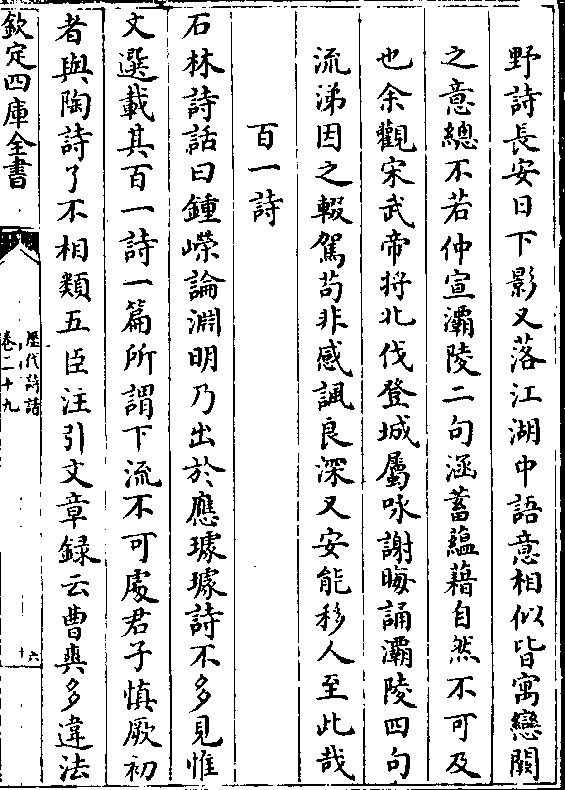 野詩長安日下影又落江湖中語意相似皆寓戀闕
之意總不若仲宣灞陵二句涵蓄蘊藉自然不可及
也余觀宋武帝將北伐登城屬咏謝晦誦灞陵四句
流涕因之輟駕苟非感諷良深又安能移人至此哉
百一詩
石林詩話曰鍾嶸論淵明乃出於應璩璩詩不多見惟
文選載其百一詩一篇所謂下流不可處君子慎厥初
者與陶詩了不相類五臣注引文章録云曹爽多違法
欽定四庫全書
歷代詩話
卷二十九
十六